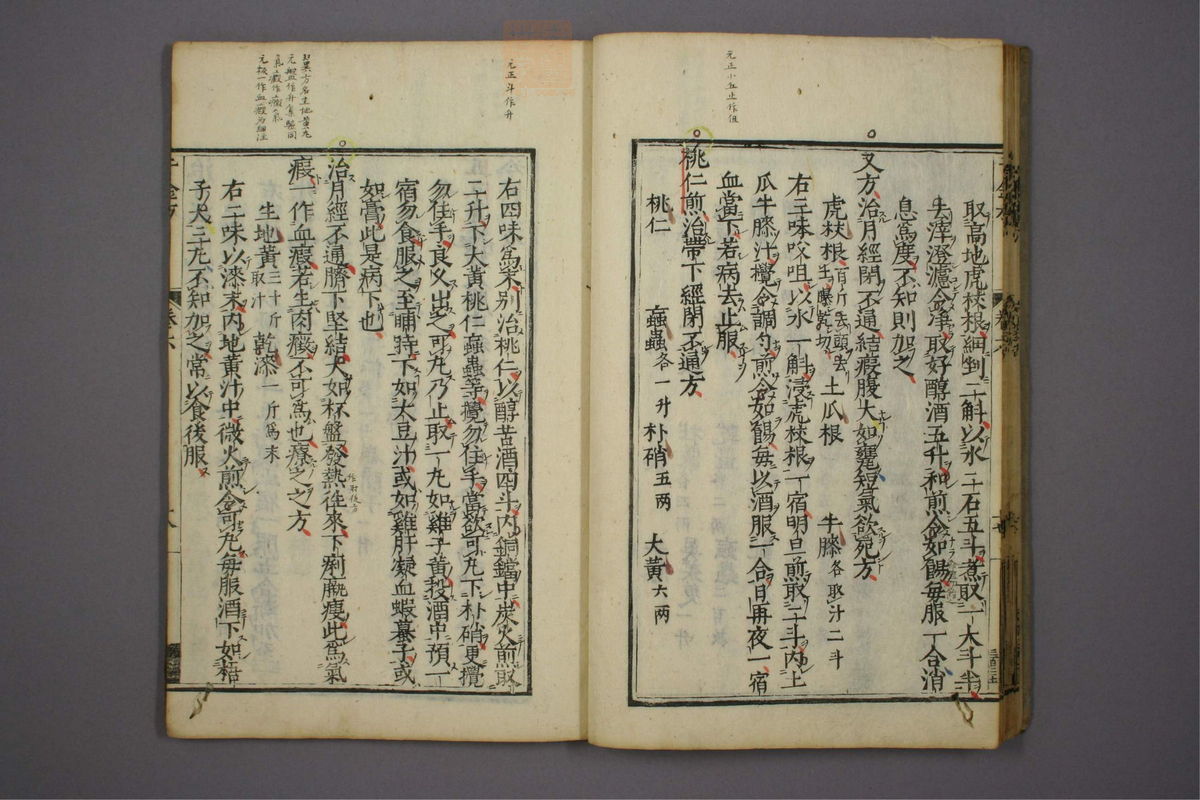 取高地虎杖根細剉二斛以水二石五斗煮取一大斗半
去滓澄濾令淨取好醇酒五升和煎令如餳每服一合消
息爲度不知則加之
又方治月經閉不通結瘕腹大如甕短氣欲死方
虎杖根百斤去頭去土曝乾切 土瓜根 牛膝各取汁二斗
右三味㕮咀以水一斛浸虎杖根一宿明旦煎取二斗內土
瓜牛膝汁攪令調勻煎令如餳每以酒服一合日再夜一宿
血當下若病去止服
桃仁煎治帶下經閉不通方
桃仁 䗪蟲各一升 朴硝五兩 大黃六兩
右四味爲末別治桃仁以醇苦酒四斗內銅鐺中炭火煎取
二升下大黃桃仁䗪蟲等攪勿住手當欲可丸下朴硝更攪
勿住手良久出之可丸乃止取一丸如雞子黃投酒中預一
宿勿食服之至晡時下如大豆汁或如雞肝凝血蝦蟇子或
如膏此是病下也
治月經不通臍下堅結大如杯盤發熱往來下痢羸瘦此爲氣
瘕一作血瘕若生肉癥不可爲也療之之方
生地黃三十斤取汁 乾漆一斤爲末
右二味以漆末內地黃汁中微火煎令可丸每服酒下如梧
子大三丸不知加之常以食後服
元正小五止作但
元正斗作升